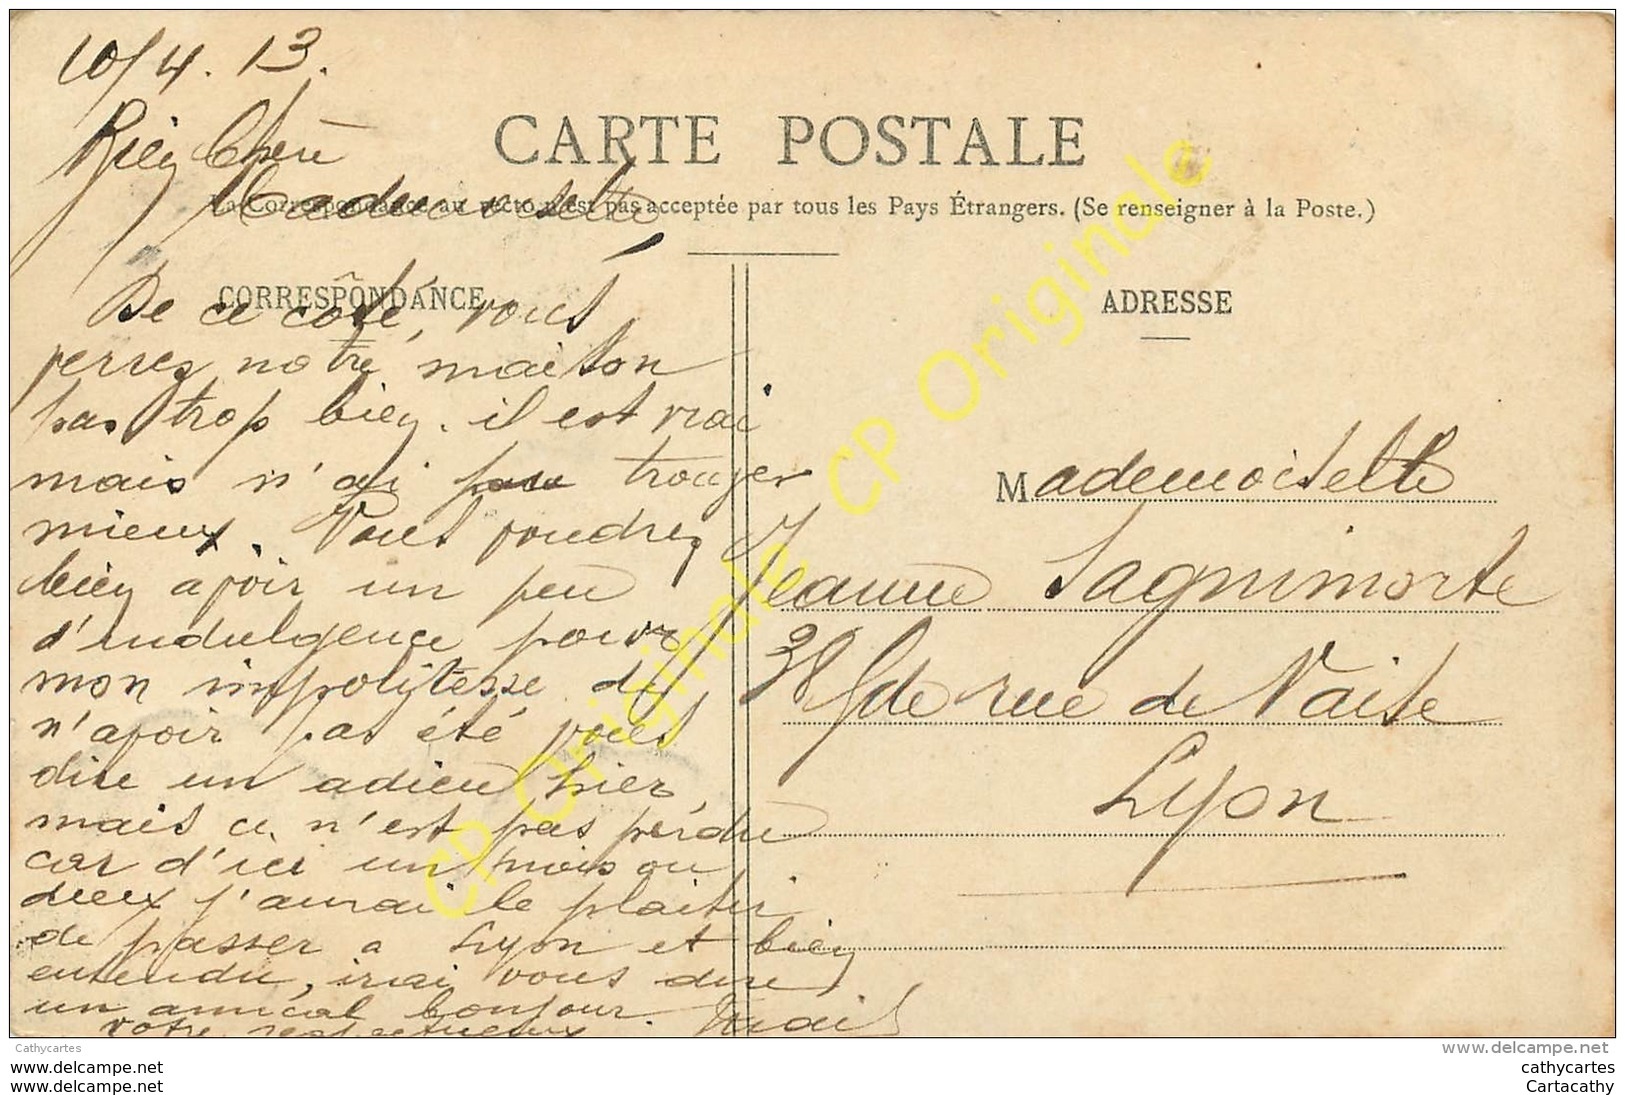 10/4.13.
Bien Chère
Mademoiselle
CARTE POSTALE
La Correspondance au recto n'est pas acceptée par tous les Pays Étrangers. (Se renseigner à la Poste.)
CORRESPONDANCE
De ce côté, vous
verrez notre maison
pas trop bien. il est vrai
mais n'ai pas trouver
mieux. Vous voudrez
bien avoir un peu
d'indulgence pour
mon impolitesse de
n'avoir pas été vous
dire un adieu hier,
mais ce n'est pas perdu
car d'ici un mois ou
deux j'aurai le plaisir
de passer a Lyon et bien
entendu, irai vous dire
un amical bonjour.
votre respectueux
ADRESSE
Mademoiselle
Jeanne Sagnimorte
38 Gde rue de Vaise
Lyon
CP Originale CP Originale CP Originale
Cathycartes
www.delcampe.net
www.delcampe.net
www.delcampe.net
cathycartes
Cartacathy